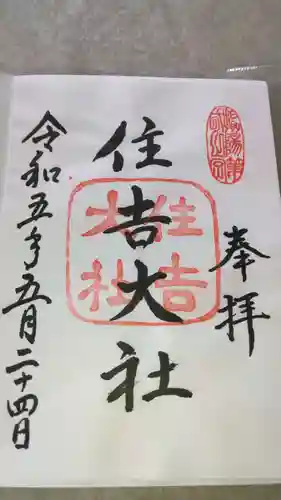 奉拝
住吉大社
住吉
大社
令和五年五月二十四日